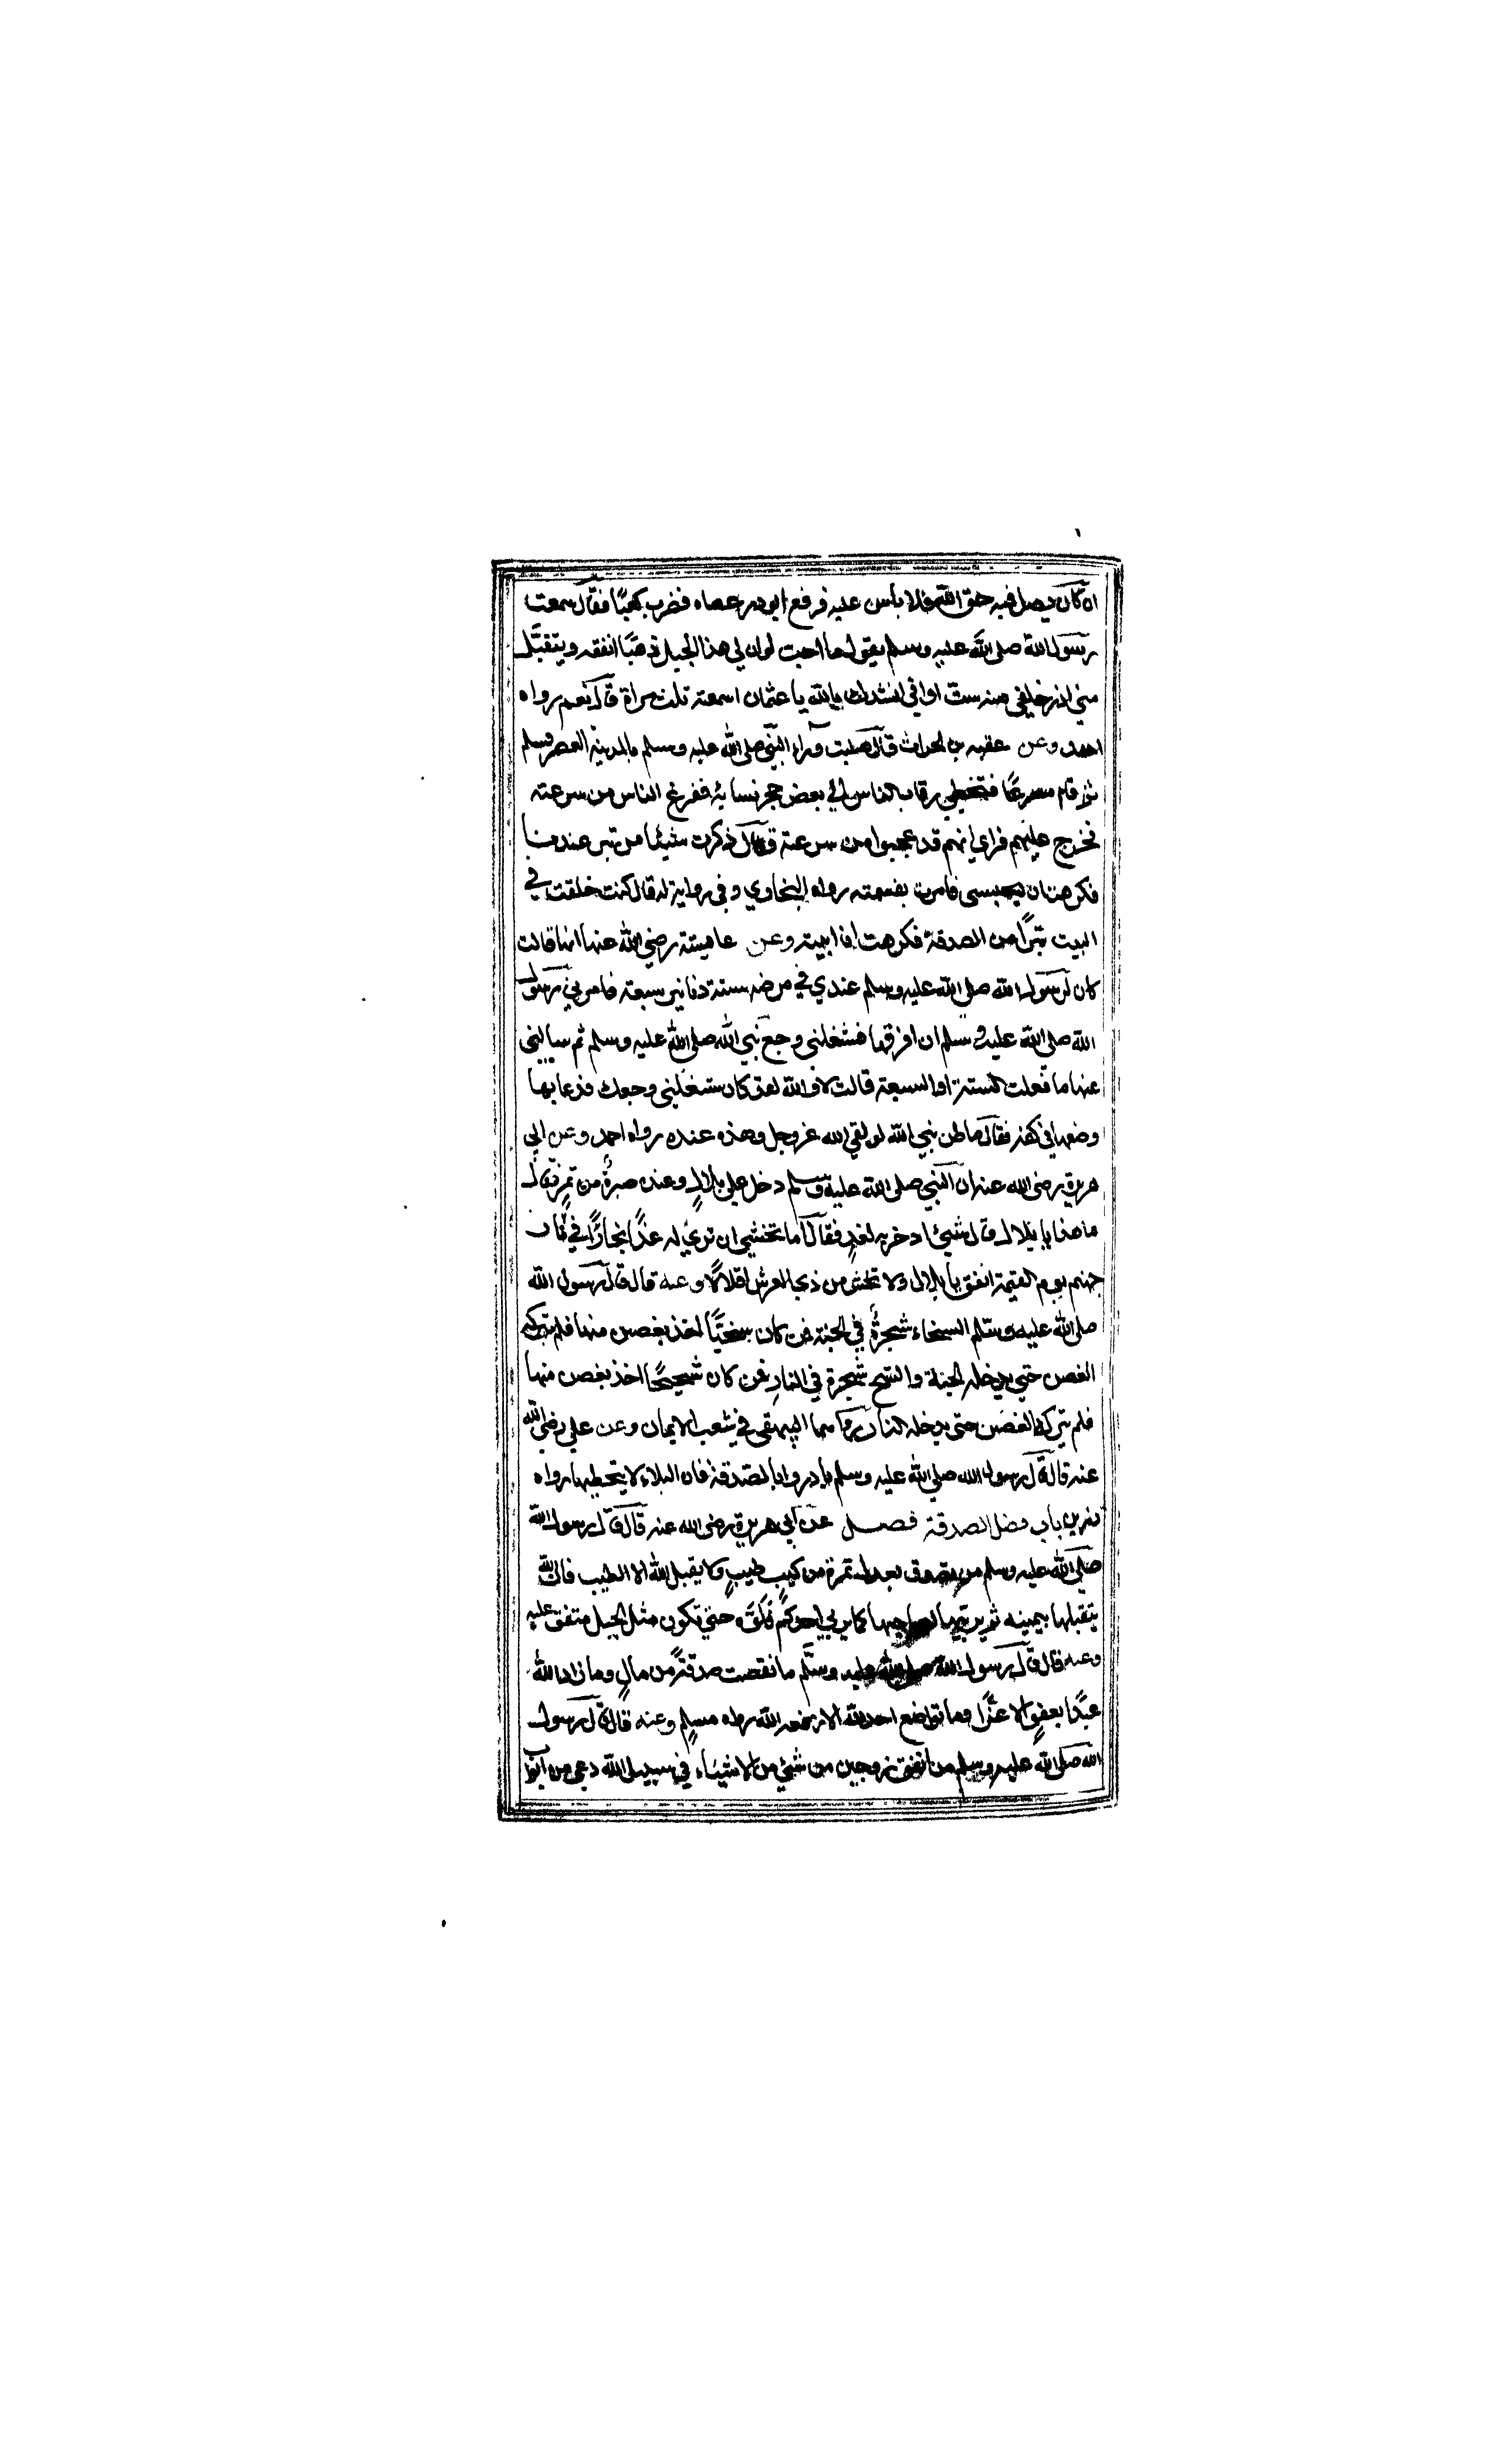 ان كان يصل فيه حق الله فلا باس عليه فرفع ابو ذر عصاه فضرب كعبًا فقال سمعت
رسول الله صلى الله عليه وسلم يقول ما احب لو ان لي هذا الجبل ذهبًا انفقه ويتقبل
مني اذر خلفي منه ست اواقي انشدك بالله يا عثمان اسمعته ثلث مراة قال نعم رواه
احمد وعن عقبه بن الحراث قال صليت وراء النبي صلى الله عليه وسلم بالمدينة العصر فسلم
ثم قام مسرعًا فتخطي رقاب الناس الي بعض حجر نسايه ففزع الناس من سرعته
فخرج عليهم فراي انهم قد عجبوا من سرعته قال ذكرت شيئا من تبر عندنا
فكرهت ان يحبسني فامرت بقسمته رواه البخاري وفي رواية له قال كنت خلفت في
البيت تبرًا من الصدقة فكرهت ان ابيته وعن عايشة رضي الله عنها انها قالت
كان لرسول الله صلى الله عليه وسلم عندي في مرضه ستة دنانير سبعة فامرني رسول
الله صلى الله عليه وسلم ان افرقها فشغلني وجع نبي الله صلى الله عليه وسلم ثم سالني
عنها ما فعلت الستة او السبعة قالت لا والله لقد كان شغلني وجعك فدعا بها
وضعها في كفه فقال ما ظن نبي الله لو لقي الله عز وجل وهذه عنده رواه احمد وعن ابي
هريرة رضي الله عنه ان النبي صلى الله عليه وسلم دخل علي بلالٍ وعنده صبرةٌ من تمرٍ قال
ما هذا يا بلال قال شيئ ادخرته لغدٍ فقال اما تخشي ان تري له غدًا بخارًا في نار
جهنم يوم القيمة انفق يا بلال ولا تخش من ذي العرش اقلالًا وعنه قال قال رسول الله
صلى الله عليه وسلم السخاء شجرةٌ في الجنة فمن كان سخيًا اخذ بغصن منها فلم يتركه
الغصن حتي يدخله الجنة والشح شجرة في النار فمن كان شحيحًا اخذ بغصن منها
فلم يتركه الغصن حتى يدخله النار رواهما البيهقي في شعب الايمان وعن علي رضي الله
عنه قال قال رسول الله صلي الله عليه وسلم بادروا بالصدقة فان البلاء لا يتخطيها رواه
رزين باب فضل الصدقة فصل عن ابي هريرة رضي الله عنه قال قال رسول الله
صلي الله عليه وسلم من تصدق بعدل تمرة من كسب طيبٍ ولا يقبل الله الا الطيب فان الله
يتقبلها بيمينه ثم يربيها لصاحبها كما يربي احدكم فلوّه حتي تكون مثل الجبل متفق عليه
وعنه قال قال رسول الله صلى الله عليه وسلم ما نقصت صدقةً من مالٍ وما زاد الله
عبدًا بعفوٍ الا عزًا وما تواضع احد لله الا رفعه الله رواه مسلم وعنه قال قال رسول
الله صلى الله عليه وسلم من انفق زوجين من شيئ من الاشياء في سبيل الله دعي من ابواب